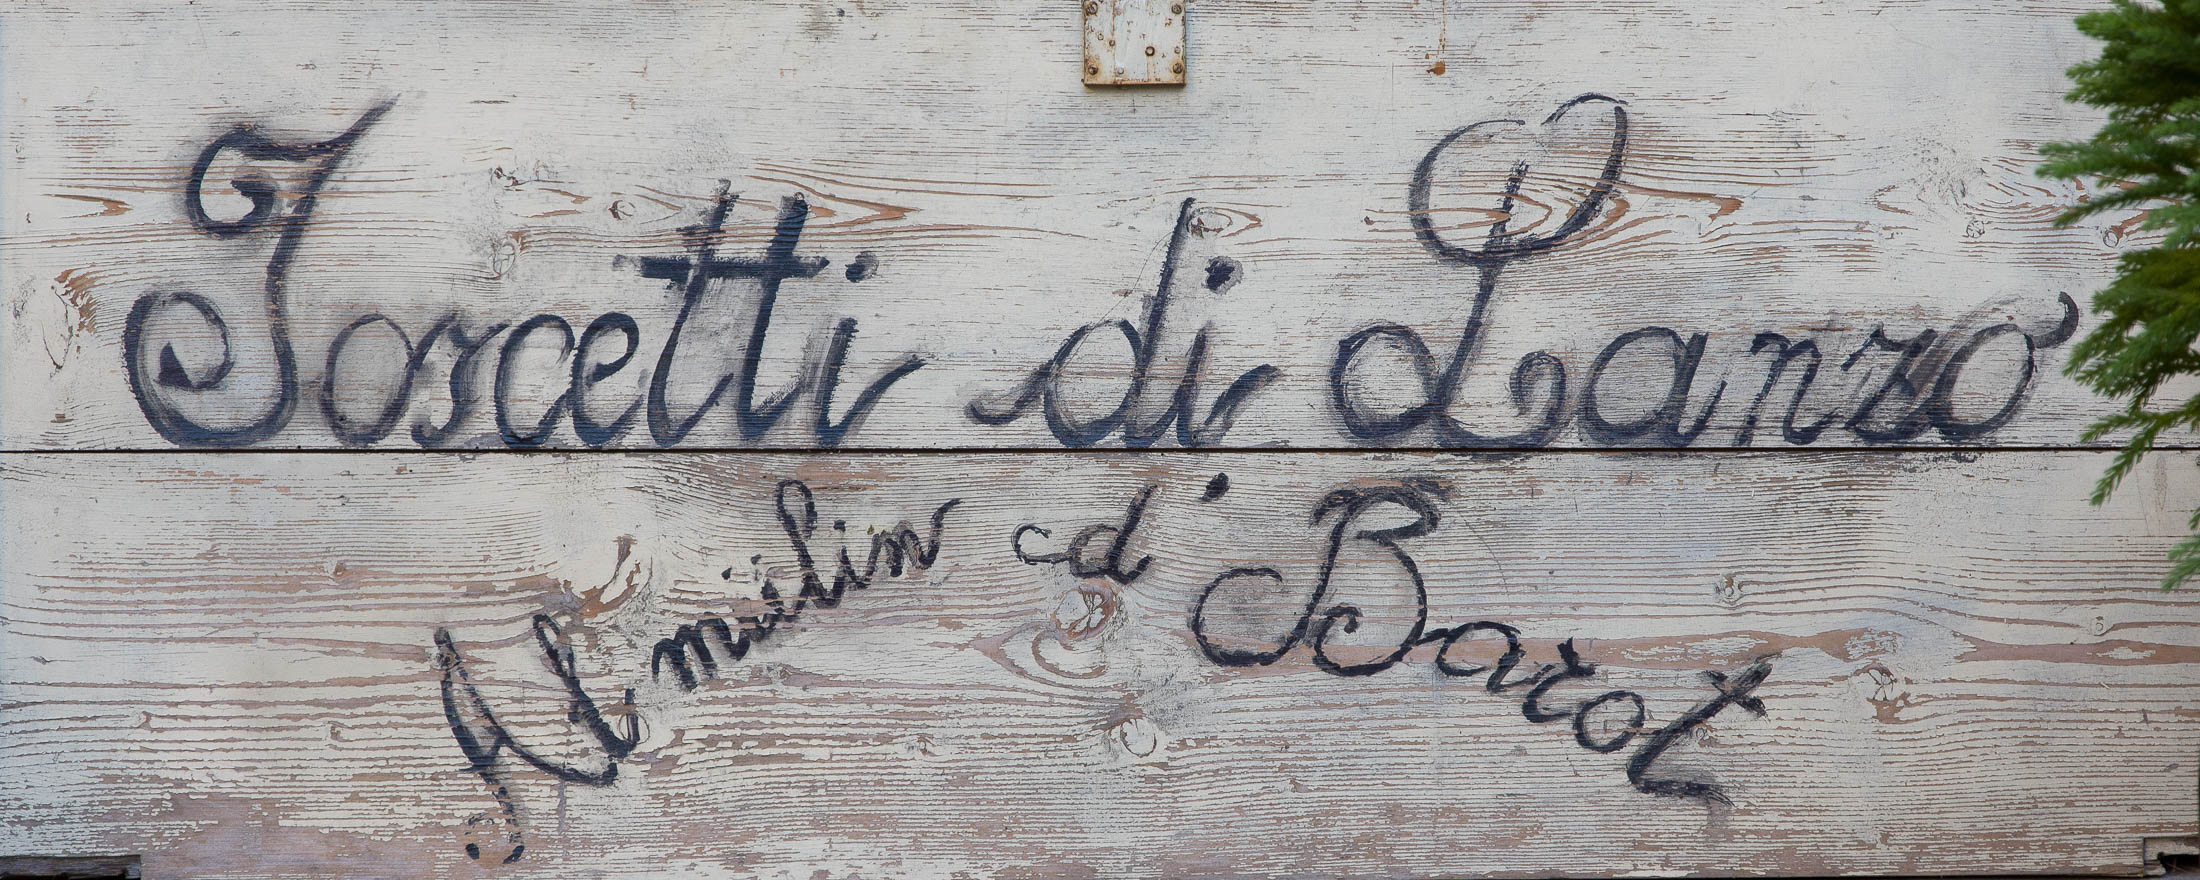 Torcetti di Lanzo
Al mülin d' Barot